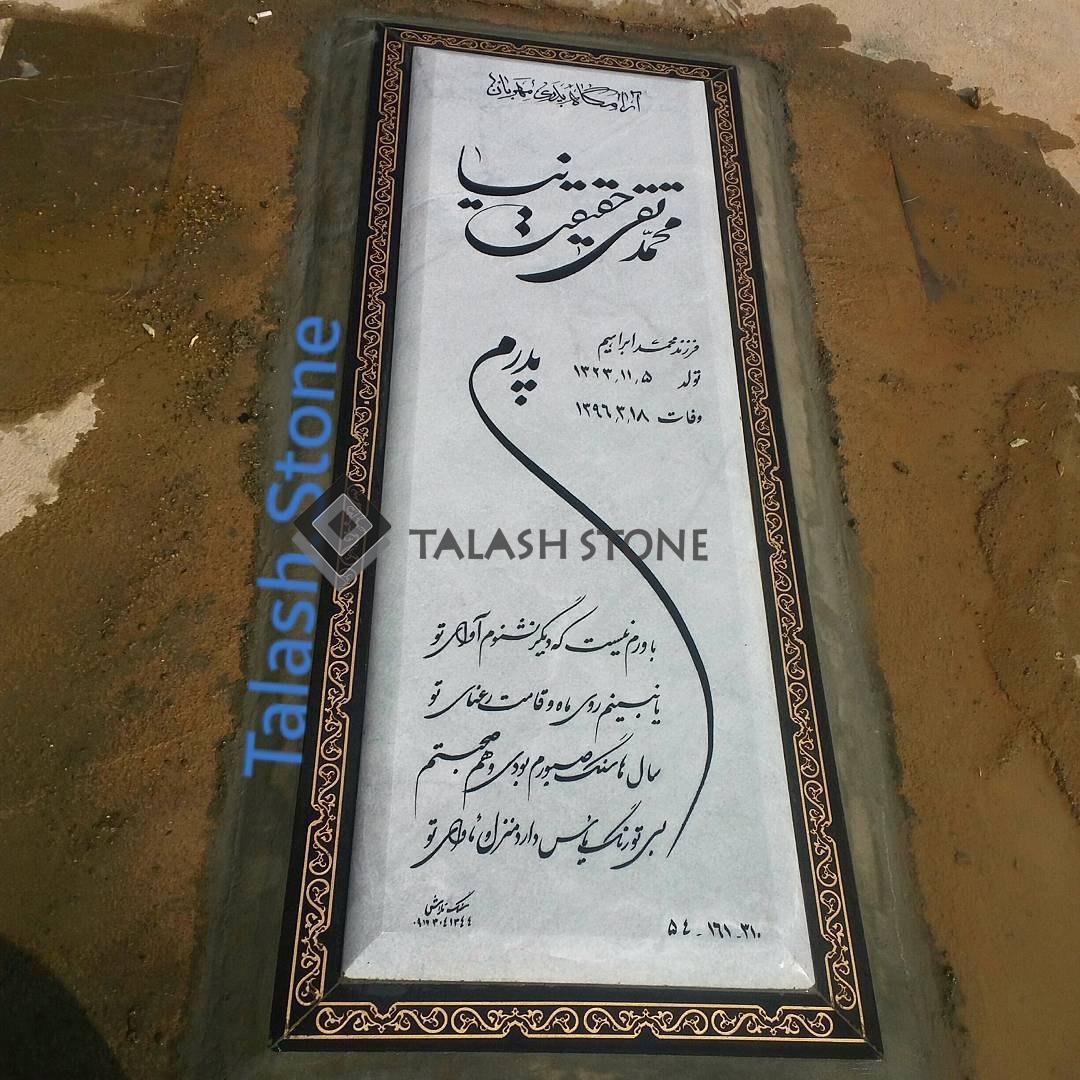 آرامگاه پدری مهربان
محمدتقی حقیقت نیا
فرزند محمد ابراهیم
تولد ۱۳۲۳٫۱۱٫۵
وفات ۱۳۹۶٫۳٫۱۸
پدرم
باورم نیست که دیگر نشنوم آوای تو
یا نبینم روی ماه و قامت رعنای تو
سال ها سنگ صبورم بودی و هم صحبتم
بی تو رنگ یأس دارد منزل و مأوای تو
سنگ تلاش
۰۹۱۲۳۰۴۱۳۴۴
۵۴ - ۱۶۱ - ۳۱۰
TALASH STONE
Talash Stone